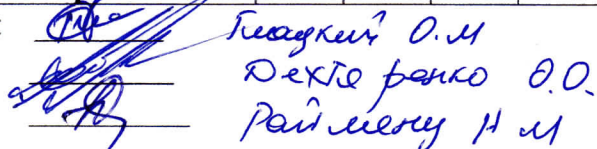 Гладкий О.М
Дехтяренко О.О.
Раймену Н М